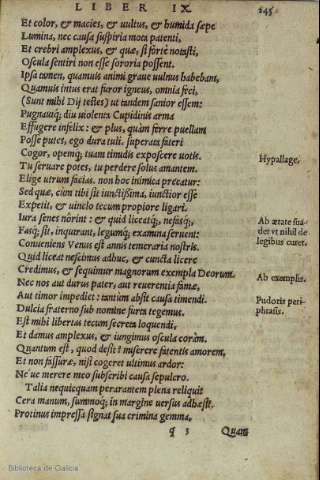 LIBER IX. 245
Et color, & macies, & uultus, & humida sæpe
Lumina, nec causa suspiria mota patenti,
Et crebri amplexus, & quæ, si forte notasti,
Oscula sentiri non esse sororia possent.
Ipsa tamen, quamuis animi graue uulnus habebam,
Quamuis intus erat furor igneus, omnia feci,
(Sunt mihi Dij testes) ut tandem sanior essem:
Pugnauiq́; diu uiolenta Cupidinis arma
Effugere infelix: & plus, quàm ferre puellam
Posse putes, ego dura tuli. superata fateri
Cogor, opemq́; tuam timidis exposcere uotis.
Hypallage.
Tu seruare potes, tu perdere solus amantem.
Elige utrum facias. non hoc inimica precatur:
Sed quæ, cùm tibi sit iunctissima, iunctior esse
Expetit, & uinclo tecum propiore ligari.
Iura senes nôrint: & quid liceatq́;, nefasq́;,
Ab ætate sua
Fasq́; sit, inquirant, legumq́; examina seruent:
det ut nihil de
Conueniens Venus est annis temeraria nostris.
legibus curet.
Quid liceat nescimus adhuc, & cuncta licere
Credimus, & sequimur magnorum exempla Deorum.
Ab exemplis.
Nec nos aut durus pater, aut reuerentia famæ,
Aut timor impediet: tantum absit causa timendi.
Pudoris peri-
Dulcia fraterno sub nomine furta tegemus.
phrasis.
Est mihi libertas tecum secreta loquendi,
Et damus amplexus, & iungimus oscula coràm.
Quantum est, quod desit? miserere fatentis amorem,
Et non fassuræ, nisi cogeret ultimus ardor:
Ne ue merere meo subscribi causa sepulcro.
Talia nequicquam perarantem plena reliquit
Cera manum, summusq́; in margine uersus adhæsit.
Protinus impressa signat sua crimina gemma,
q 3 Quam
Biblioteca de Galicia